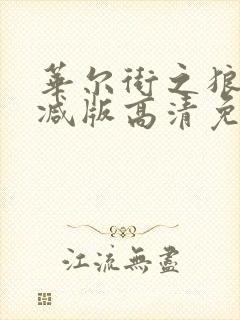 华尔街之狼
减版高清免
江流無盡